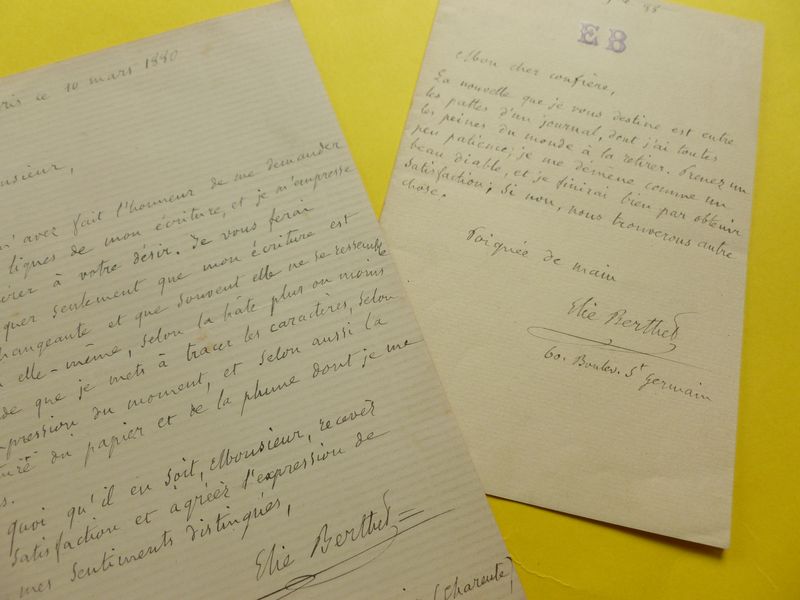 ris ce 10 mars 1880
nsieur,
m'avez fait l'honneur de me demander
lignes de mon écriture, et je m'empresse
érer à votre désir. Je vous ferai
quer seulement que mon écriture est
changeante et que souvent elle ne se ressemble
à elle-même, selon la hâte plus ou moins
de que je mets à tracer les caractères, selon
pression du moment, et selon aussi la
ture du papier et de la plume dont je me
s.
quoi qu'il en soit, Monsieur, recevez
satisfaction et agréez l'expression de
mes sentiments distingués,
Elie Berthet
(Charente)
88
EB
Mon cher confrère,
La nouvelle que je vous destine est entre
les pattes d'un journal, dont j'ai toutes
les peines du monde à la retirer. Prenez un
peu patience; je me démène comme un
beau diable, et je finirai bien par obtenir
satisfaction; si non, nous trouverons autre
chose.
Poignée de main
Elie Berthet
60. Boulev. St Germain